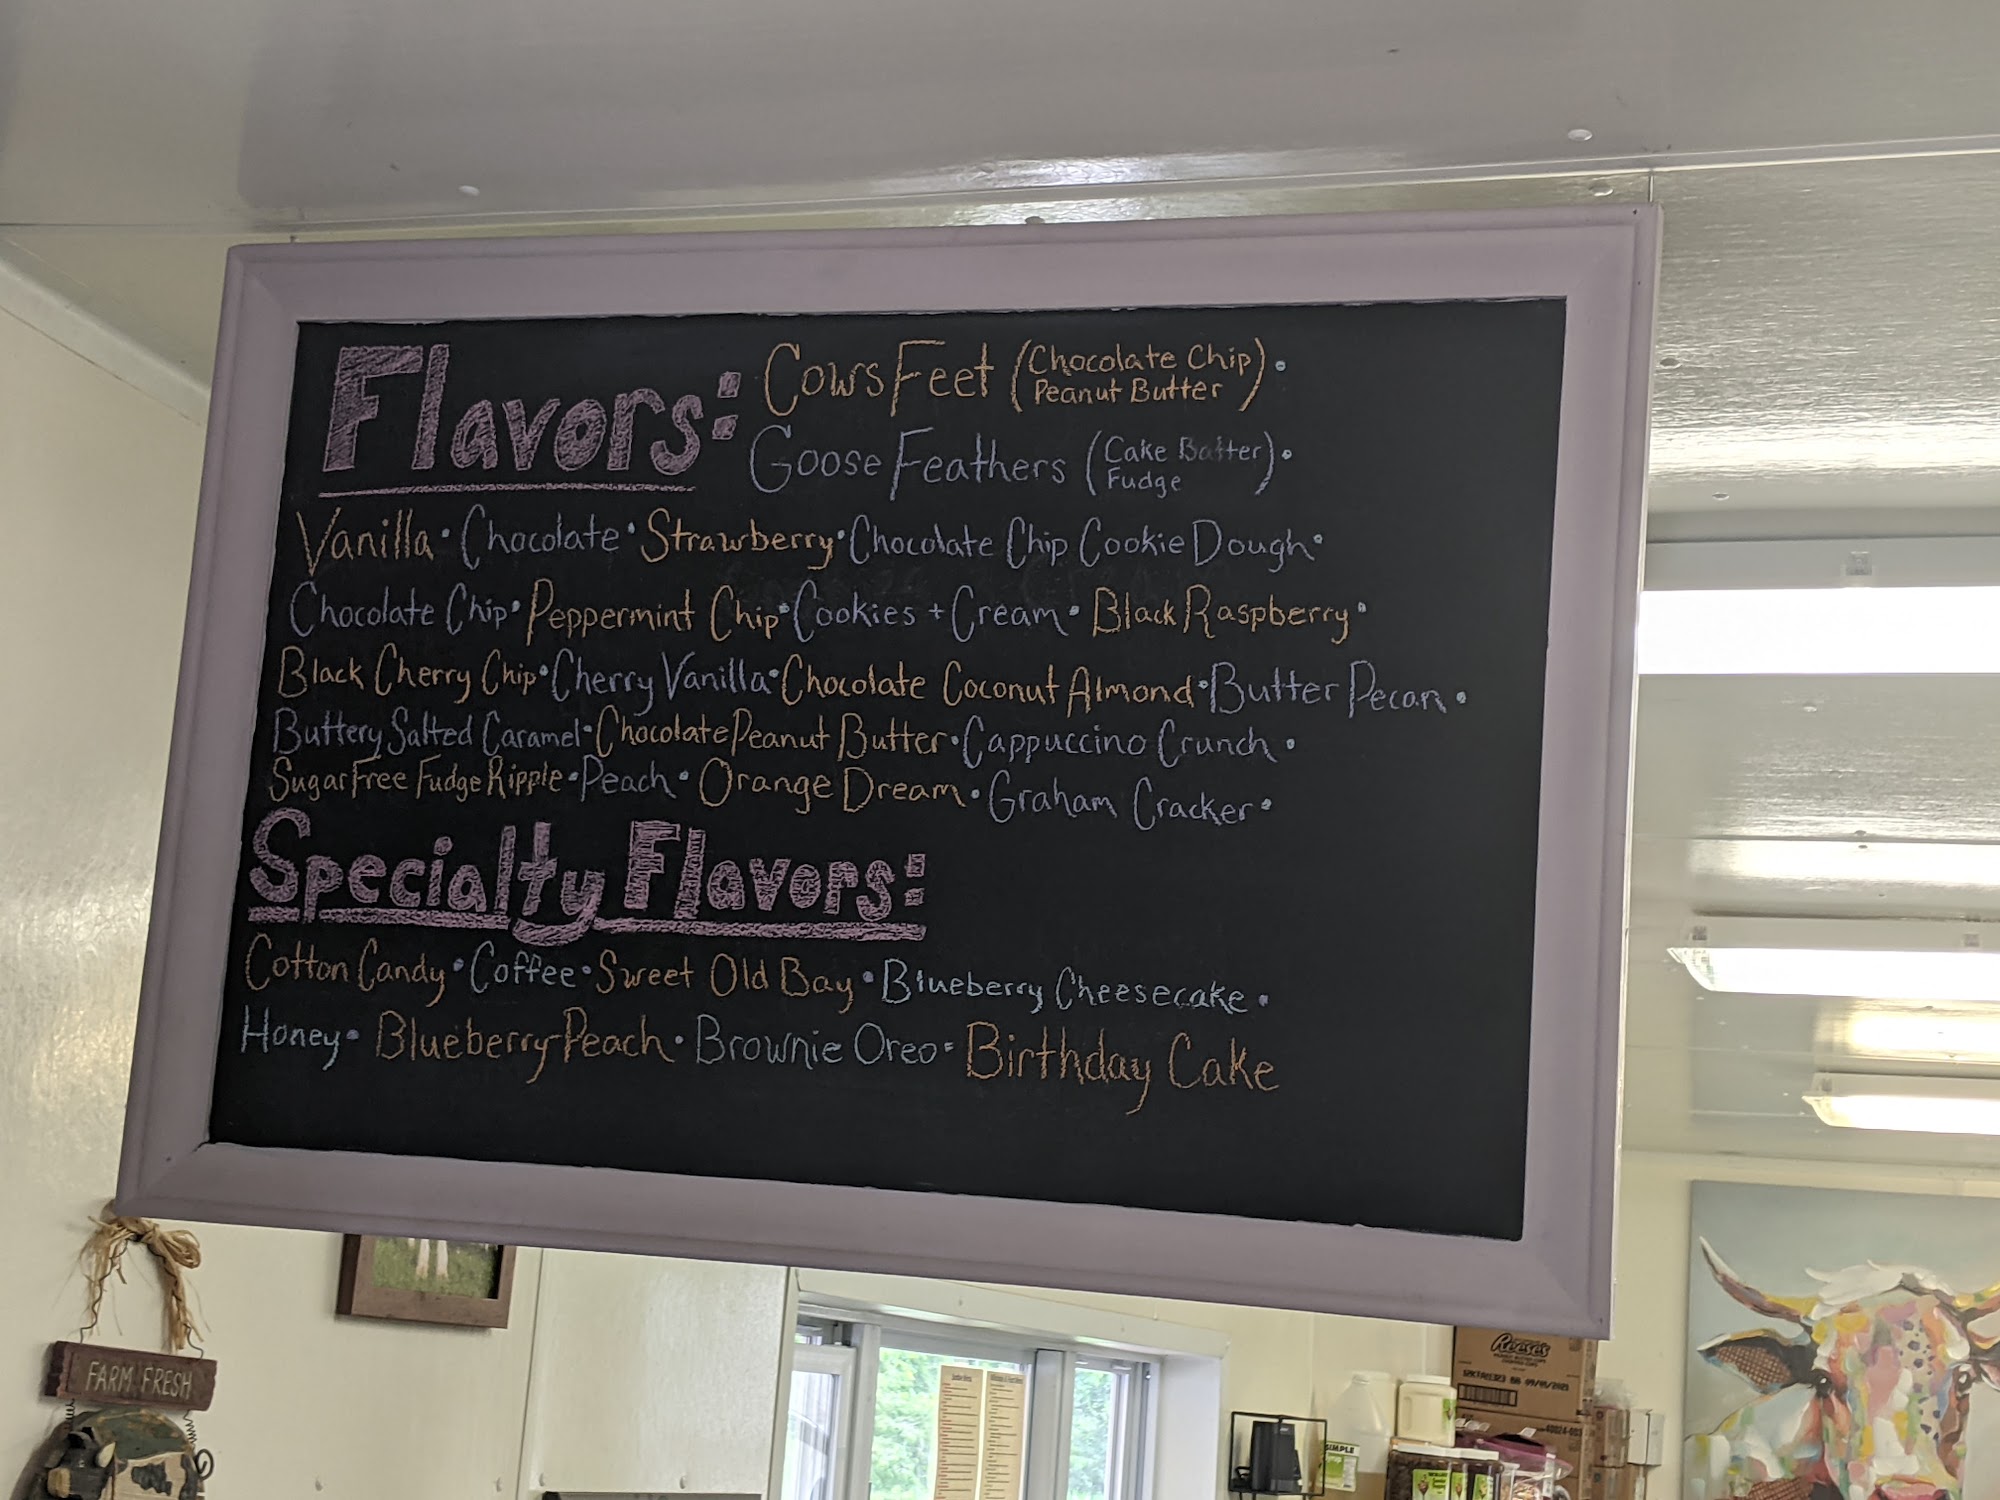 Flavors: Cows Feet (Chocolate Chip Peanut Butter) •
Goose Feathers (Cake Batter Fudge) •
Vanilla • Chocolate • Strawberry • Chocolate Chip Cookie Dough •
Chocolate Chip • Peppermint Chip • Cookies + Cream • Black Raspberry •
Black Cherry Chip • Cherry Vanilla • Chocolate Coconut Almond • Butter Pecan •
Buttery Salted Caramel • Chocolate Peanut Butter • Cappuccino Crunch •
Sugar Free Fudge Ripple • Peach • Orange Dream • Graham Cracker •
Specialty Flavors:
Cotton Candy • Coffee • Sweet Old Bay • Blueberry Cheesecake •
Honey • Blueberry-Peach • Brownie Oreo • Birthday Cake
FARM FRESH
Reese's
SIMPLE